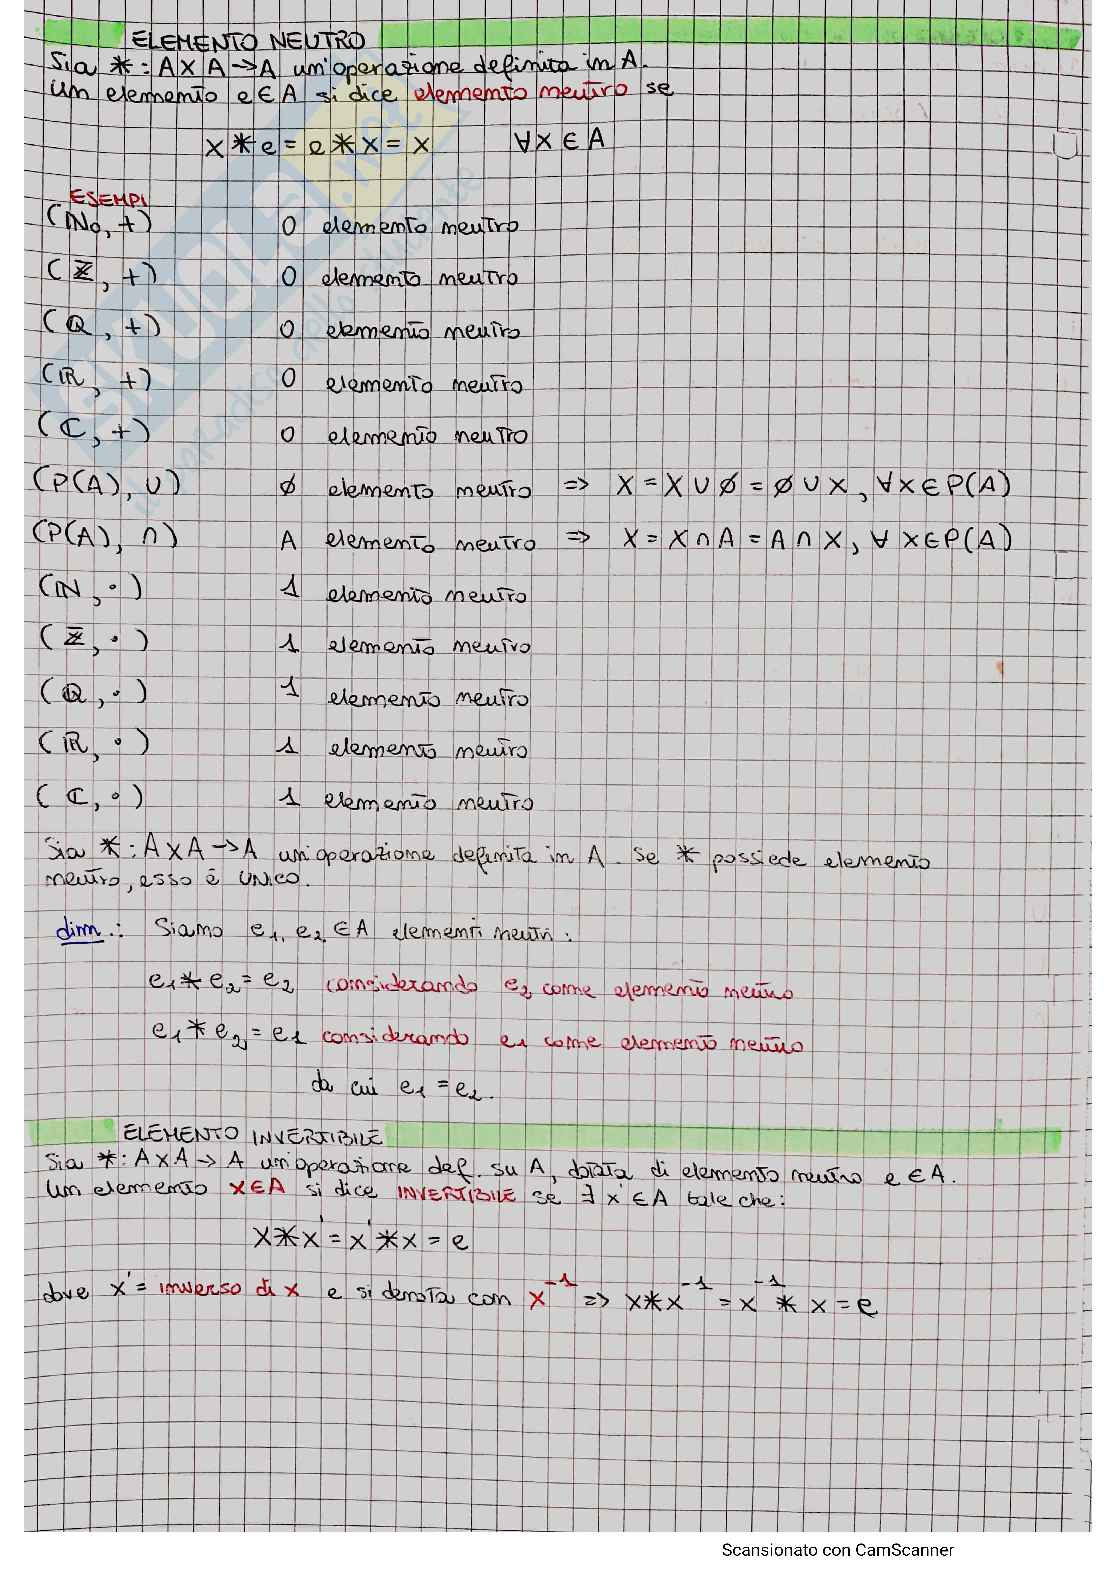 ELEMENTO NEUTRO
Sia * : A X A → A un'operazione definita in A.
Un elemento e ∈ A si dice elemento neutro se
x * e = e * x = x ∀ x ∈ A
ESEMPI
(ℕ₀, +) 0 elemento neutro
(ℤ, +) 0 elemento neutro
(ℚ, +) 0 elemento neutro
(ℝ, +) 0 elemento neutro
(ℂ, +) 0 elemento neutro
(P(A), ∪) ∅ elemento neutro => X = X ∪ ∅ = ∅ ∪ X, ∀ X ∈ P(A)
(P(A), ∩) A elemento neutro => X = X ∩ A = A ∩ X, ∀ X ∈ P(A)
(ℕ, ·) 1 elemento neutro
(ℤ, ·) 1 elemento neutro
(ℚ, ·) 1 elemento neutro
(ℝ, ·) 1 elemento neutro
(ℂ, ·) 1 elemento neutro
Sia * : A X A → A un'operazione definita in A. Se * possiede elemento
neutro, esso è UNICO.
dim.: Siano e₁, e₂ ∈ A elementi neutri:
e₁ * e₂ = e₂ considerando e₂ come elemento neutro
e₁ * e₂ = e₁ considerando e₁ come elemento neutro
da cui e₁ = e₂.
ELEMENTO INVERTIBILE
Sia * : A X A → A un'operazione def. su A, dotata di elemento neutro e ∈ A.
Un elemento x ∈ A si dice INVERTIBILE se ∃ x' ∈ A tale che:
x * x' = x' * x = e
dove x' = inverso di x e si denota con x⁻¹ => x * x⁻¹ = x⁻¹ * x = e
SKUOLA.net
il paradiso dello studente
Scansionato con CamScanner